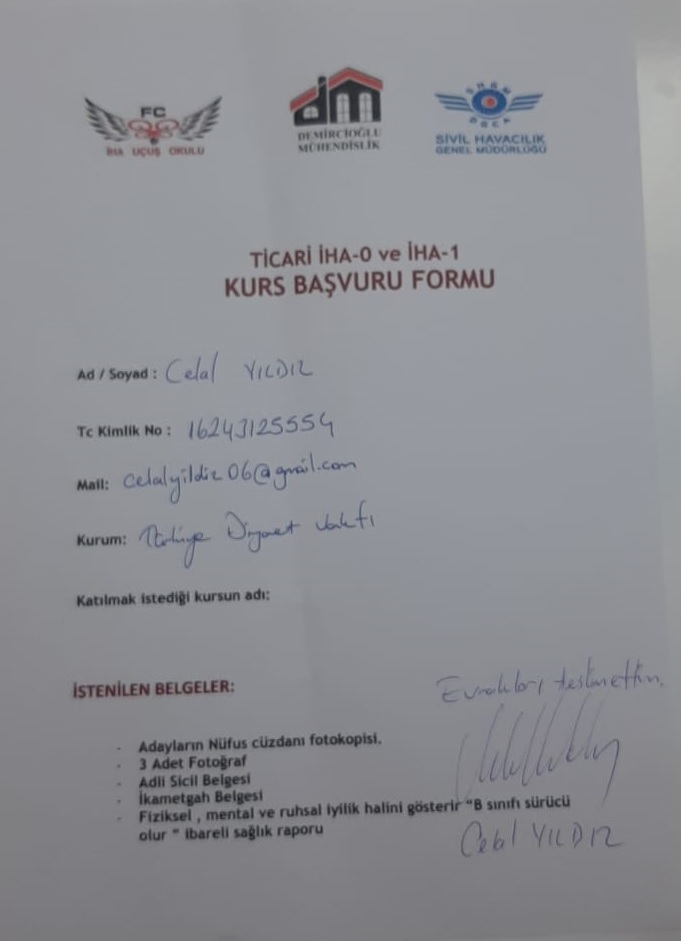 FC
İHA UÇUŞ OKULU
DEMİRCİOĞLU
MÜHENDİSLİK
SHGM
DGCA
SİVİL HAVACILIK
GENEL MÜDÜRLÜĞÜ
TİCARİ İHA-0 ve İHA-1
KURS BAŞVURU FORMU
Ad / Soyad : Celal YILDIZ
Tc Kimlik No : 16243125554
Mail: celalyildiz06@gmail.com
Kurum: Türkiye Diyanet Vakfı
Katılmak istediği kursun adı:
İSTENİLEN BELGELER:
Evrakları teslimettim.
- Adayların Nüfus cüzdanı fotokopisi.
- 3 Adet Fotoğraf
- Adli Sicil Belgesi
- İkametgah Belgesi
- Fiziksel , mental ve ruhsal iyilik halini gösterir "B sınıfı sürücü
olur " ibareli sağlık raporu
Celal YILDIZ